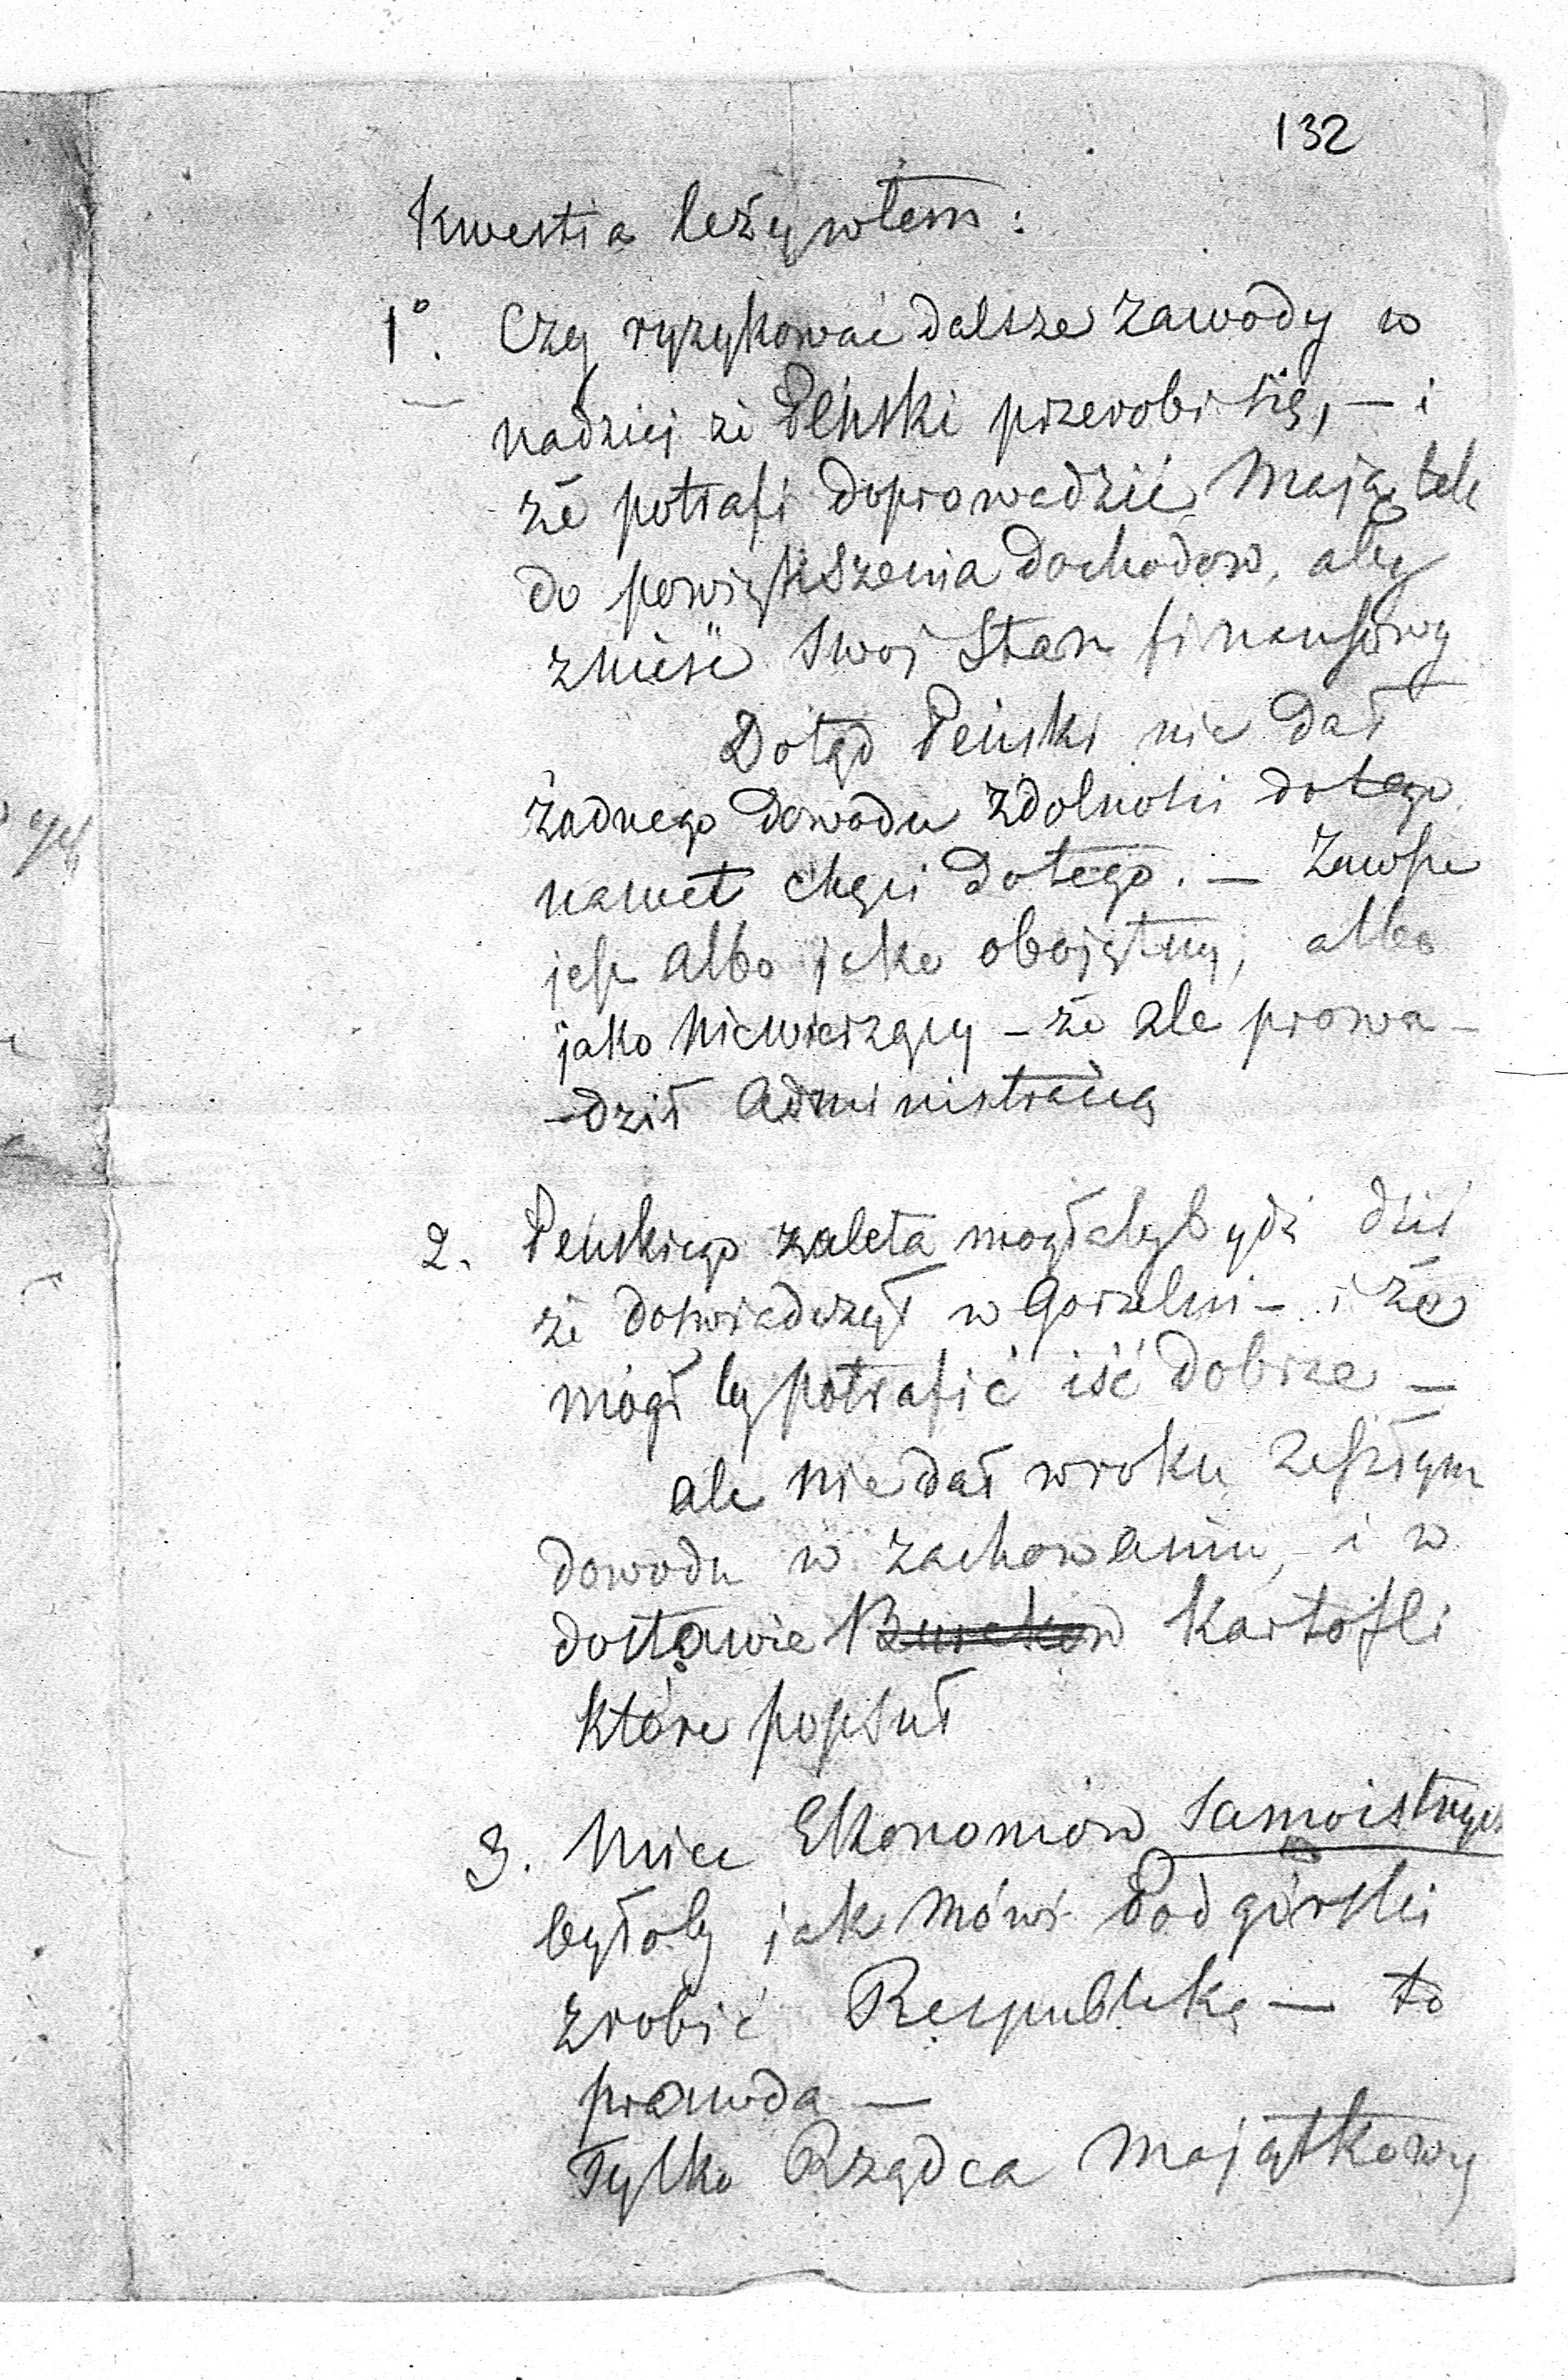 132
Kwestia leży w tem:
1° Czy ryzykować dalsze zawody w
nadziei że Peński przerobi się, — i
że potrafi doprowadzić Majątek
do powiększenia dochodów, aby
znieść swój stan finansowy
Dotąd Peński nie dał
żadnego dowodu zdolności do tego
nawet chęci do tego. — Zawsze
jest albo jako obojętny, albo
jako niewierzący — że źle prowa-
-dził administracią
2. Peńskiego zaleta mogłaby bydź dziś
że doświadczył w Gorzelni — i że
mógł by potrafić iść dobrze —
ale nie dał w roku zeszłym
dowodu w zachowaniu, i w
dostawie Buraków Kartofli
które popsuł
3. Mieć Ekonomów samoistnych
byłoby jak mówi Podgórski
zrobić Respublikę — to
prawda —
Tylko Rządca Majątkowy